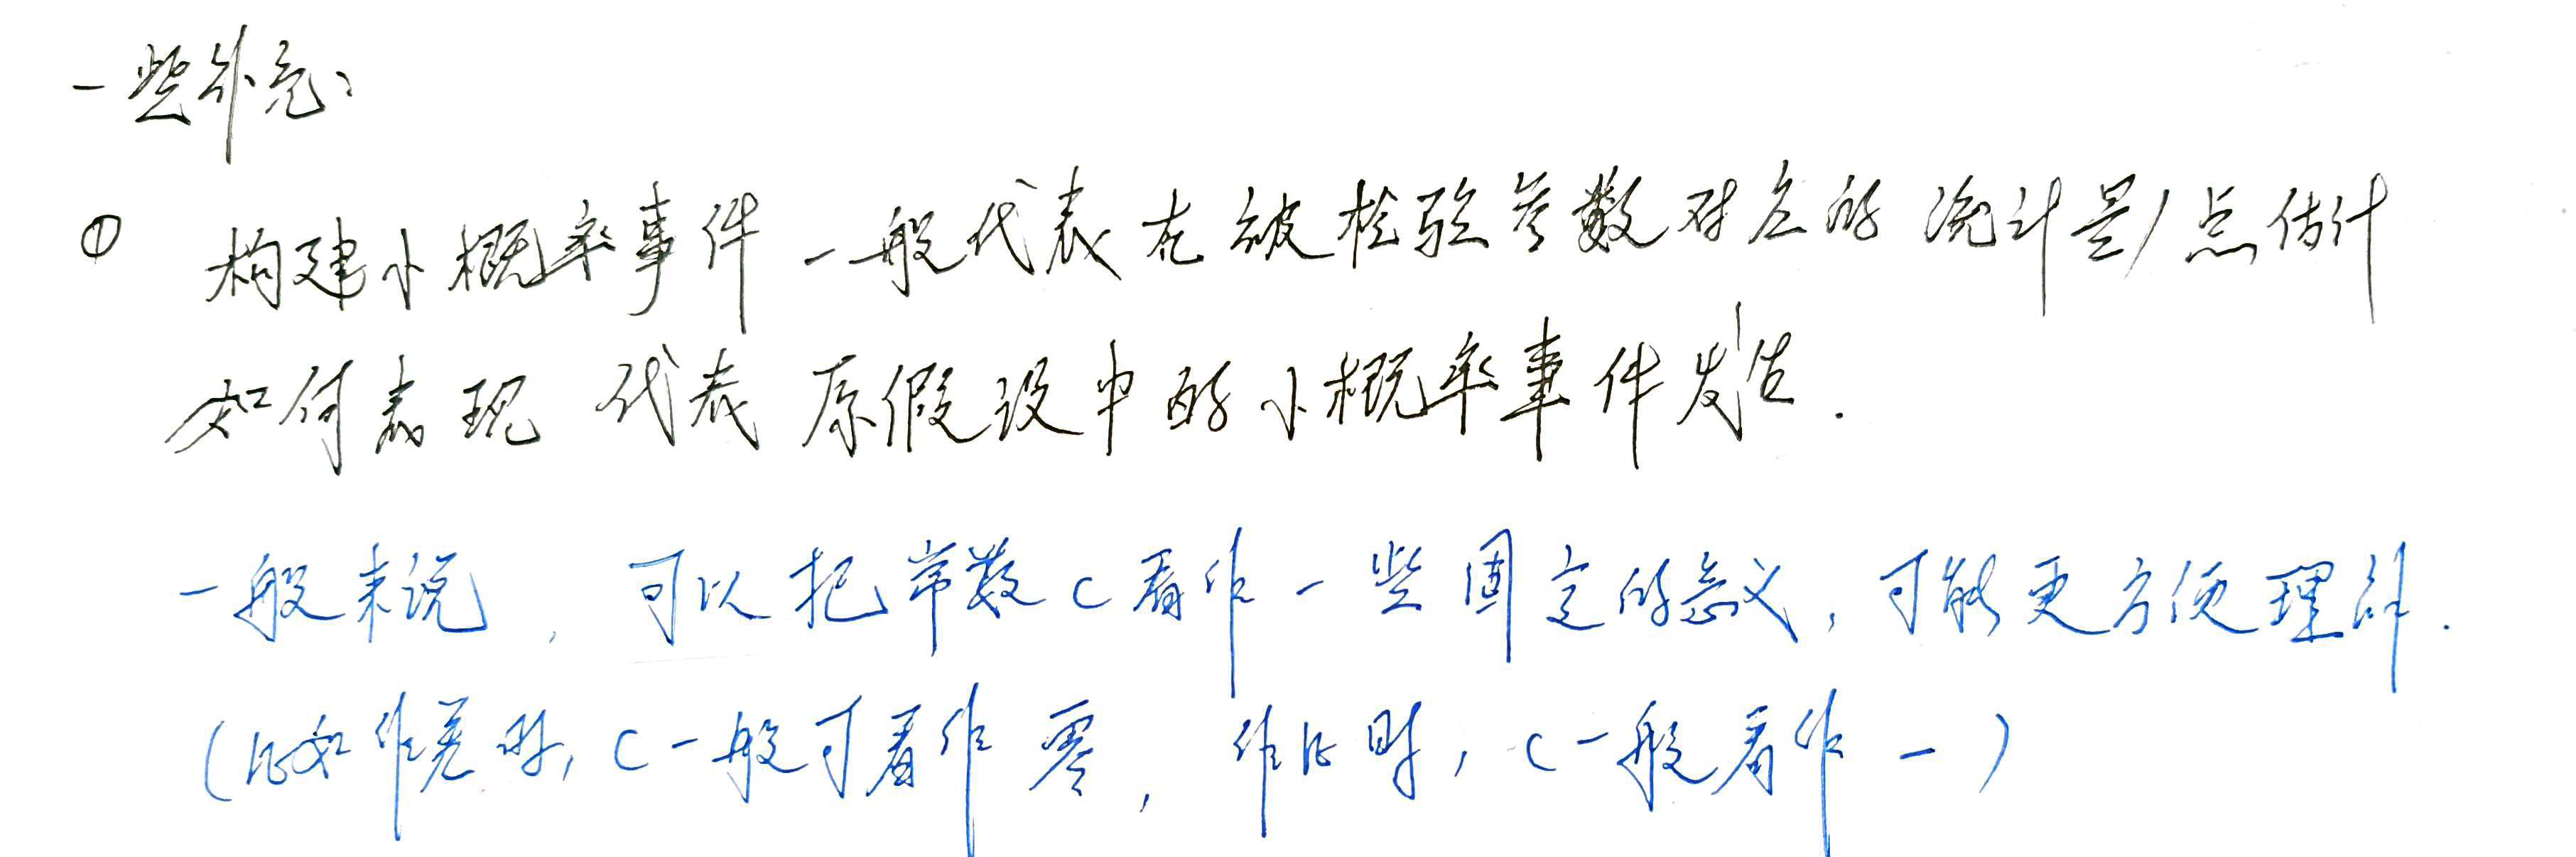 一些补充：
① 构建小概率事件一般代表在被检验参数对应的统计量/点估计
如何表现 代表 原假设中的小概率事件发生.
一般来说，可以把常数c看作一些固定的意义，可能更方便理解.
(比如作差时, c一般可看作零, 作比时, c一般看作一)